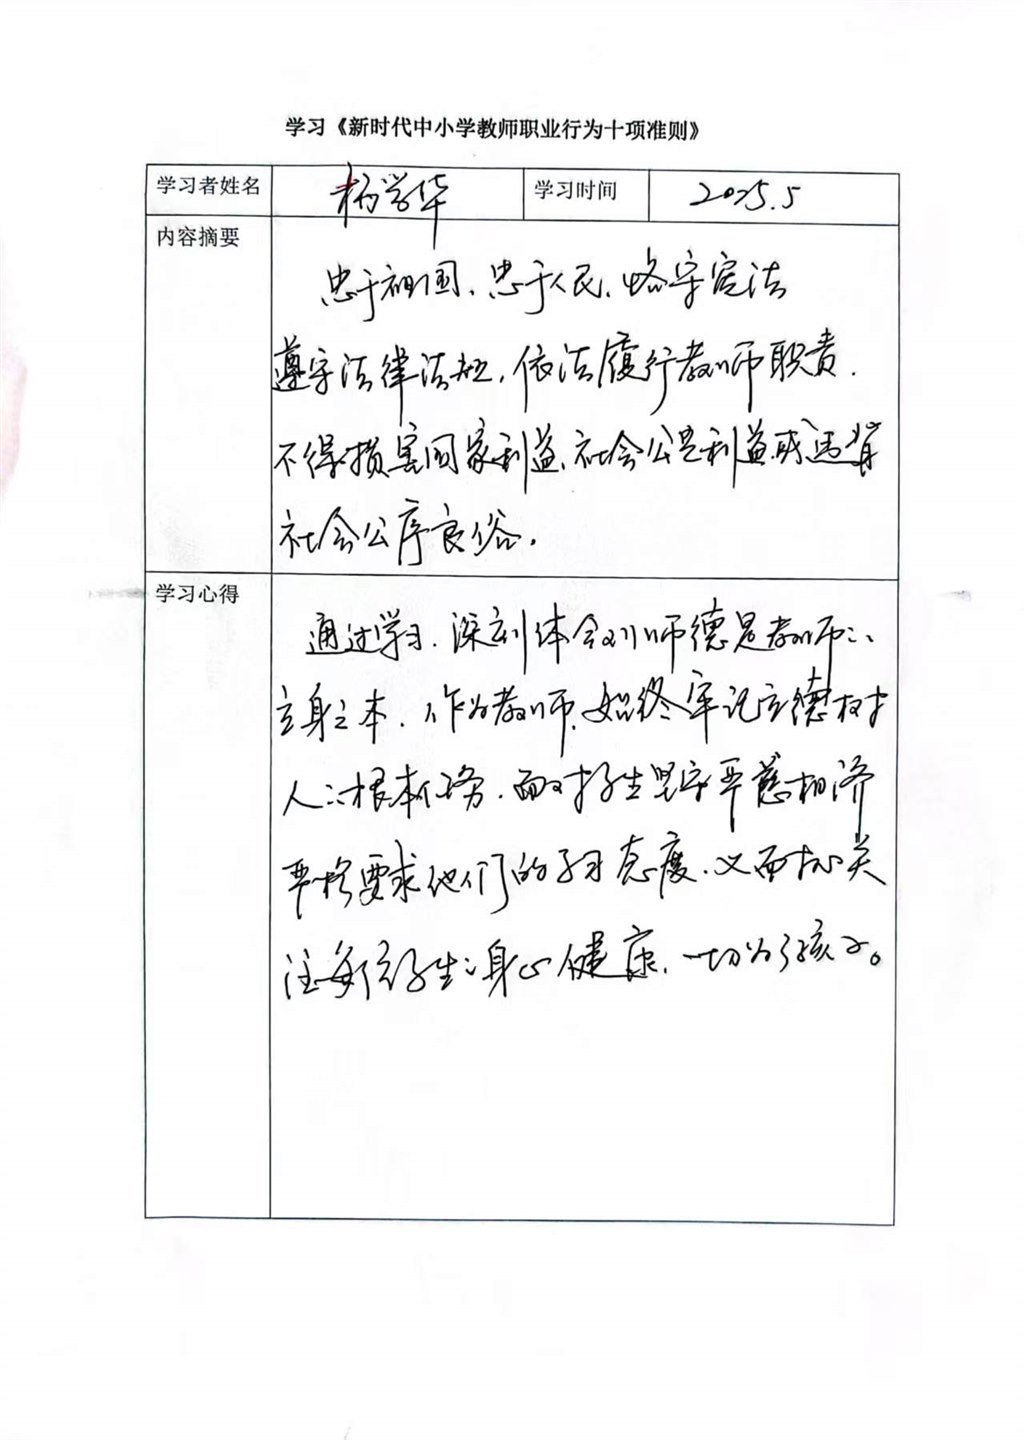 学习《新时代中小学教师职业行为十项准则》
学习者姓名 杨学华 学习时间 2025.5
内容摘要
忠于祖国、忠于人民、恪守宪法
遵守法律法规,依法履行教师职责.
不得损害国家利益、社会公共利益或违背
社会公序良俗.
学习心得
通过学习.深刻体会到师德是教师之
立身之本.作为教师.始终牢记立德树
人的根本任务.面对学生坚守严慈相济
严格要求他们的学习态度.又面
注每位学生的身心健康.一切为了孩子。